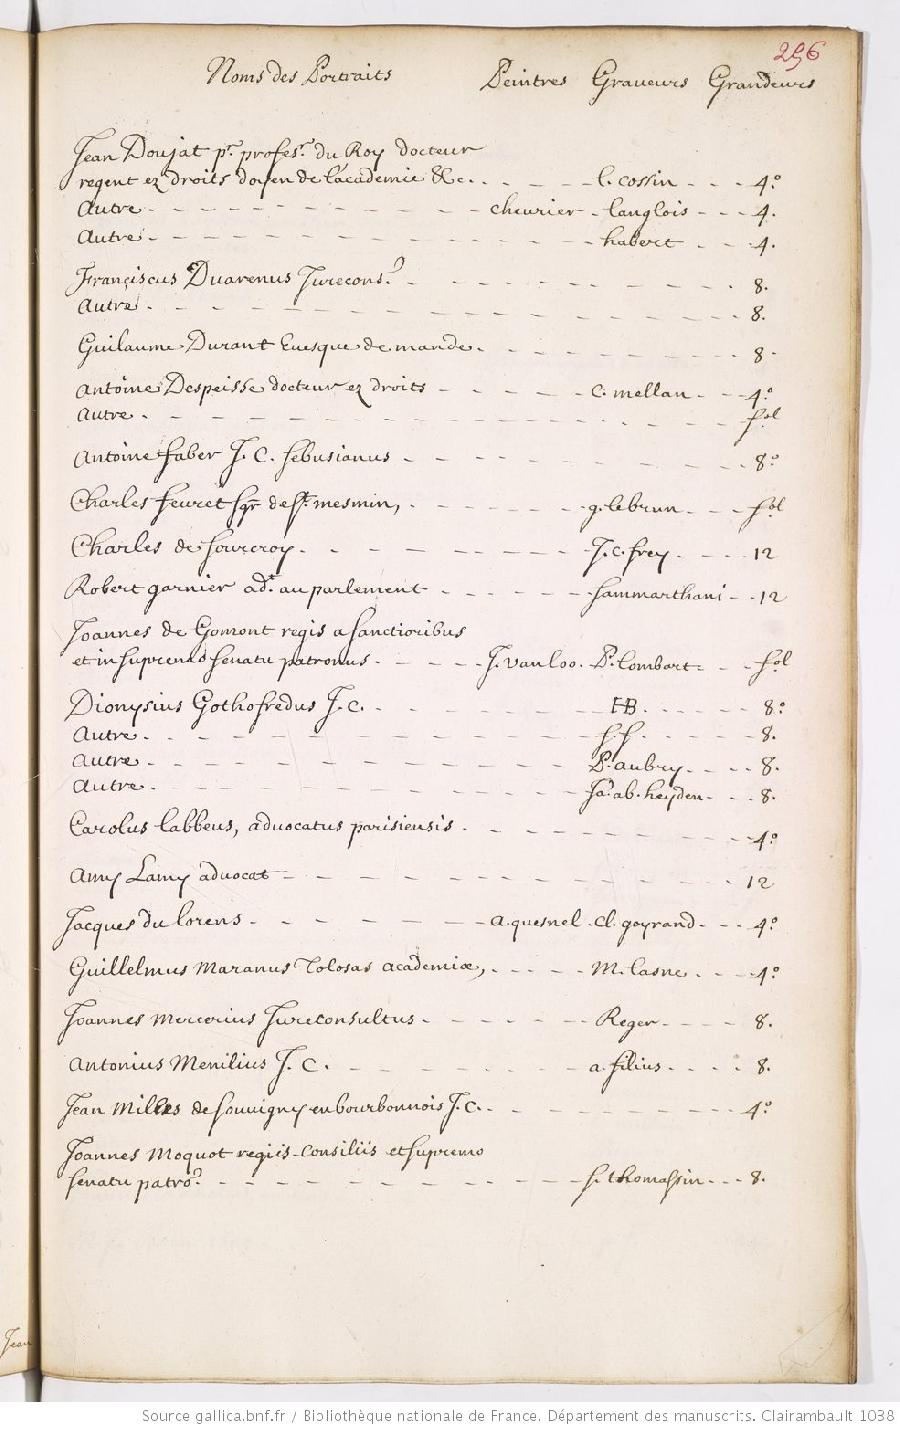 296
Noms des Portraits Peintres Graveurs Grandeurs
Jean Doujat pr. profesr. du Roy docteur
regent ez droits doyen de l'academie &c. l. cossin 4.°
Autre cheurier langlois 4.
Autre habert 4.
Franciscus Duarenus Jurecons.? 8.
Autre 8.
Guilaume Durant Euesque de mande. 8.
Antoine Despeisse docteur ez droits c. mellan 4.°
Autre fol
Antoine faber J. C. sebusianus 8.°
Charles feuret sgr de st. mesmin, g. lebrun fol
Charles de fourcroy J. c. frey 12
Robert garnier adt. au parlement sammarthani 12
Joannes de Gomont regis a sanctioribus
et in supremo senatu patronus J. vanloo. P. lombart fol
Dionysius Gothofredus J. C. HB 8.°
Autre ff 8.
Autre P. aubry 8.
Autre Ja. ab. heyden 8.
Carolus labbeus, advocatus parisiensis 4.°
Amy Lamy advocat 12
Jacques du lorens a. quesnel cl. goyrand 4.°
Guillelmus Maranus Tolosas academiæ, M. lasne 4.°
Joannes mercerius Jureconsultus Reger 8.
Antonius Menilius J. C. a. filius 8.
Jean Milles de souvigny en bourbonnois J. C. 4.°
Joannes Moquot regiis consiliis et supremo
senatu patro? s. thomassin 8.
Jean
Source gallica.bnf.fr / Bibliothèque nationale de France. Département des manuscrits. Clairambault 1038